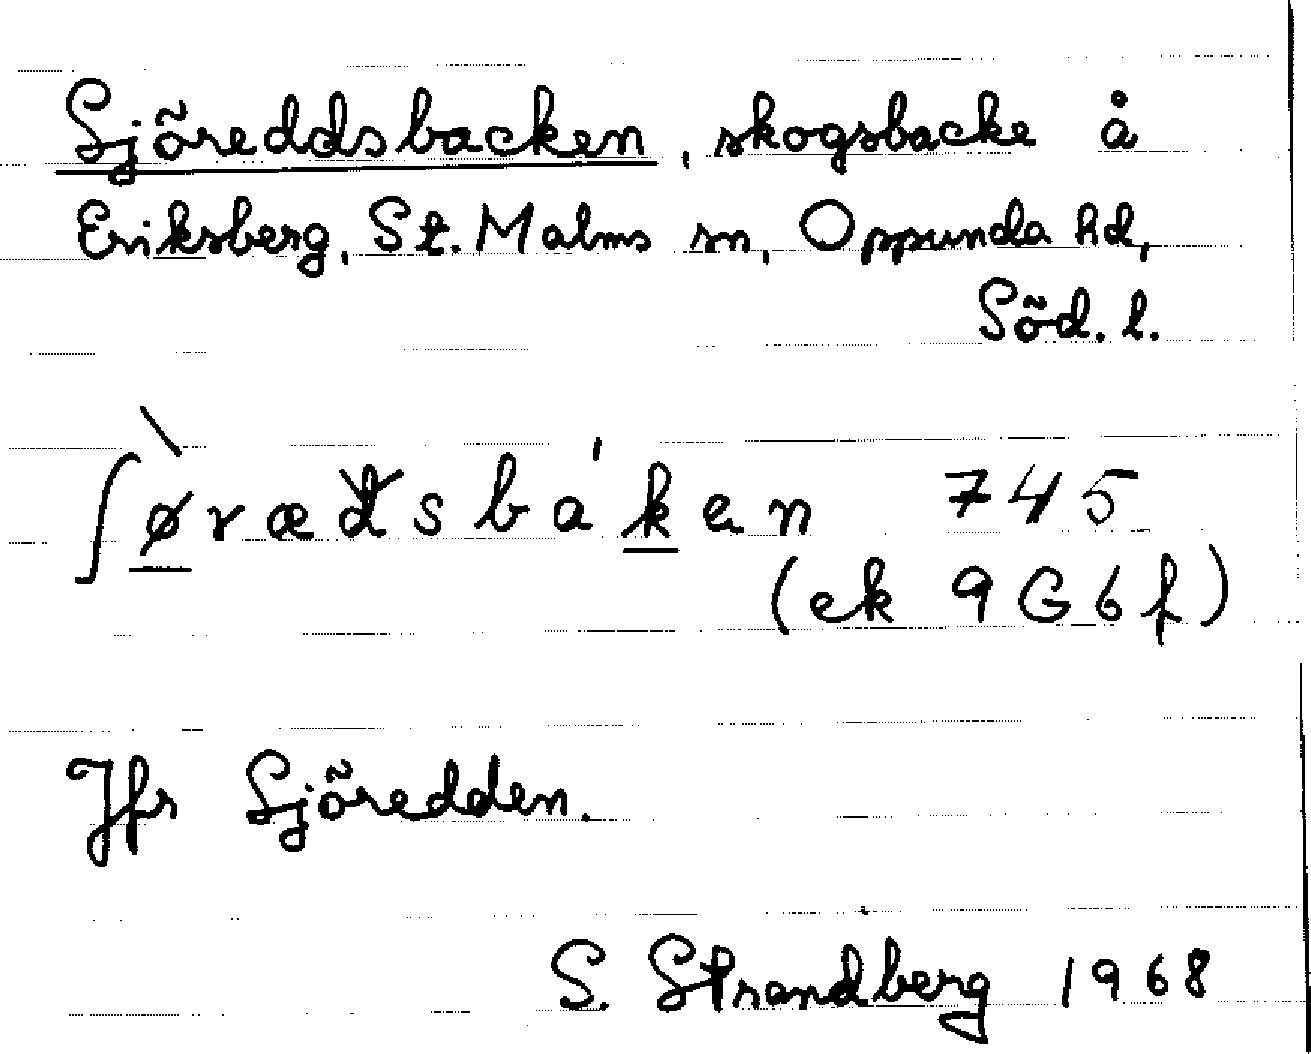 Sjöreddsbacken, skogsbacke å
Eriksberg, St. Malms sn, Oppunda hd,
Söd. l.
ʃø̀rædsbáken 745
(ek 9G6f)
Jfr Sjöredden.
S. Strandberg 1968